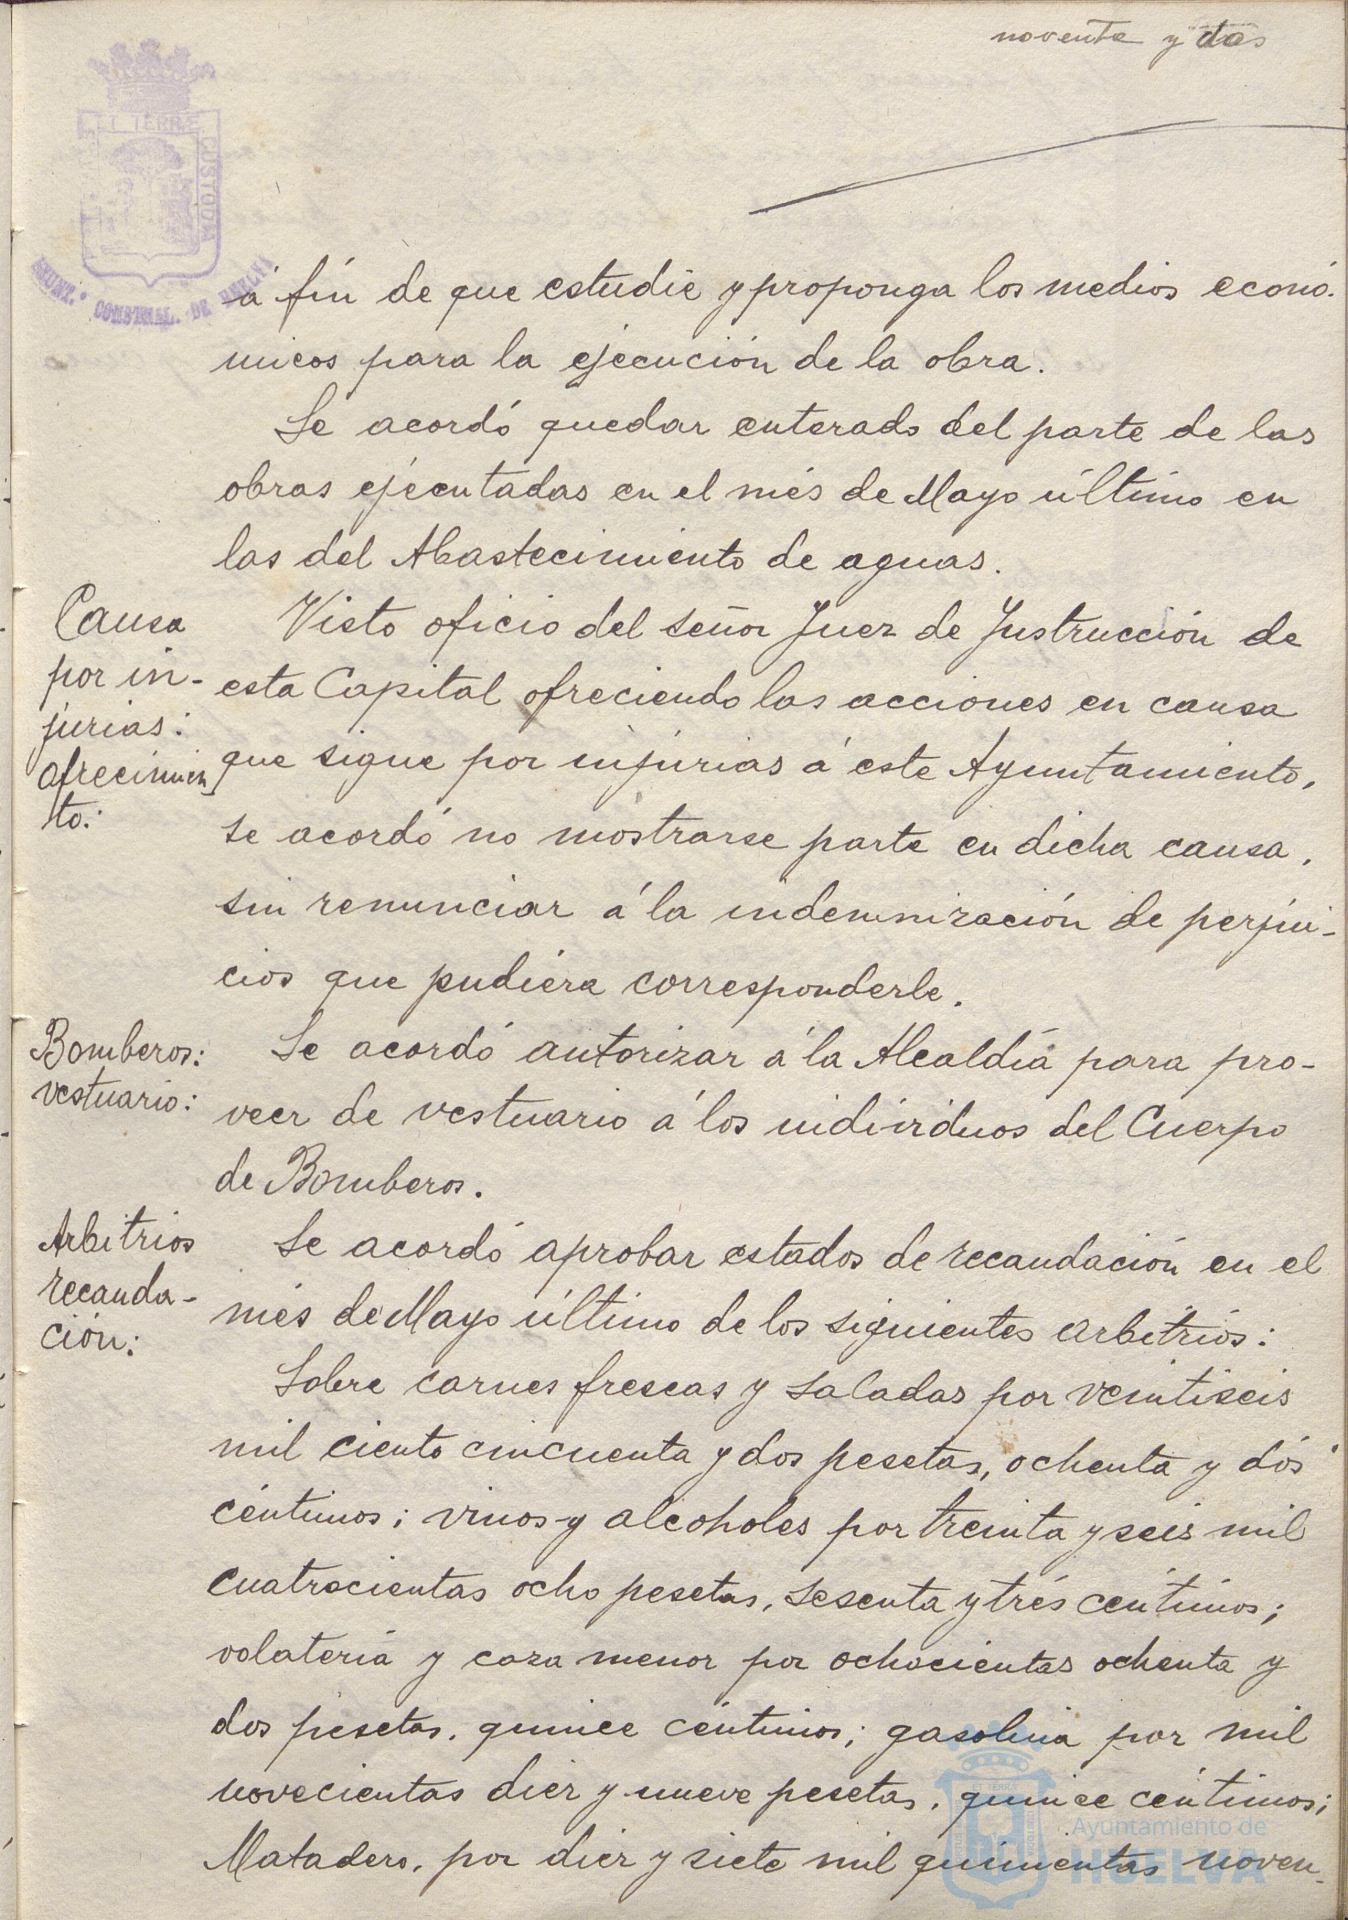 noventa y dos
á fín de que estudie y proponga los medios econó-
micos para la ejecución de la obra.
Se acordó quedar enterado del parte de las
obras ejecutadas en el més de Mayo último en
las del Abastecimiento de aguas.
Causa
por in-
jurias:
ofrecimien
to:
Visto oficio del señor Juez de Instrucción de
esta Capital ofreciendo las acciones en causa
que sigue por injurias á este Ayuntamiento,
se acordó no mostrarse parte en dicha causa,
sin renunciar á la indemnización de perjui-
cios que pudiera corresponderle.
Bomberos:
vestuario:
Se acordó autorizar á la Alcaldía para pro-
veer de vestuario á los individuos del Cuerpo
de Bomberos.
Arbitrios
recauda-
ción:
Se acordó aprobar estados de recaudación en el
més de Mayo último de los siguientes arbitrios:
Sobre carnes frescas y saladas por veintiseis
mil ciento cincuenta y dos pesetas, ochenta y dós
céntimos; vinos y alcoholes por treinta y seis mil
cuatrocientas ocho pesetas, sesenta y trés céntimos;
volatería y caza menor por ochocientas ochenta y
dos pesetas, quince céntimos; gasolina por mil
novecientas diez y nueve pesetas, quince céntimos;
Matadero, por diez y siete mil quinientas noven-
ET TERRÆ CUSTODIA
AYUNT.º CONSTNAL. DE HUELVA
Ayuntamiento de
HUELVA